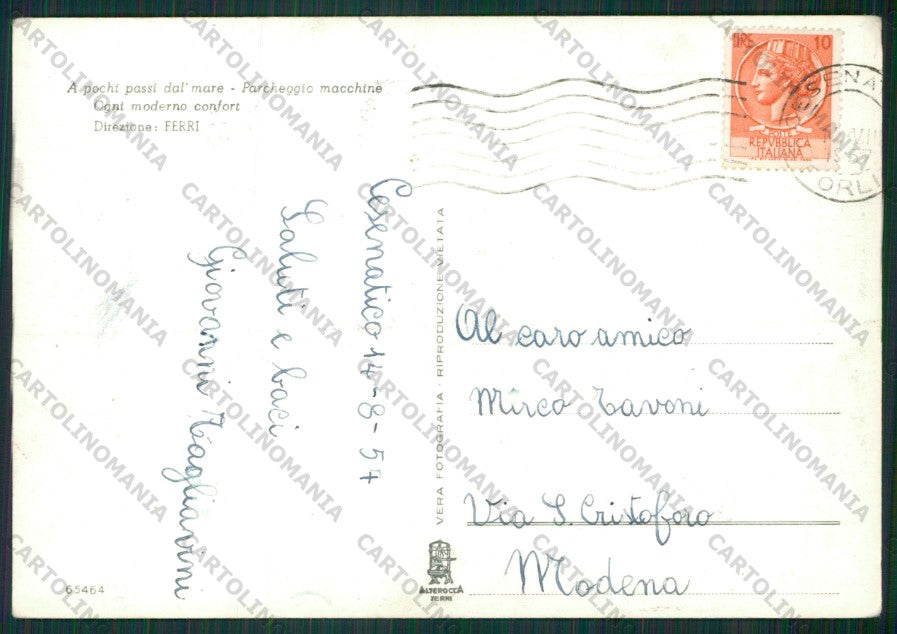 A pochi passi dal' mare - Parcheggio macchine
Ogni moderno confort
Direzione: FERRI
LIRE 10
POSTE
REPVBBLICA
ITALIANA
Cesenatico 14-8-54
Saluti e baci
Giovanni Tagliavini
VERA FOTOGRAFIA - RIPRODUZIONE VIETATA
Al caro amico
Mirco Tavoni
Via S. Cristoforo
Modena
65464
ALTEROCCA
TERNI
CARTOLINOMANIA